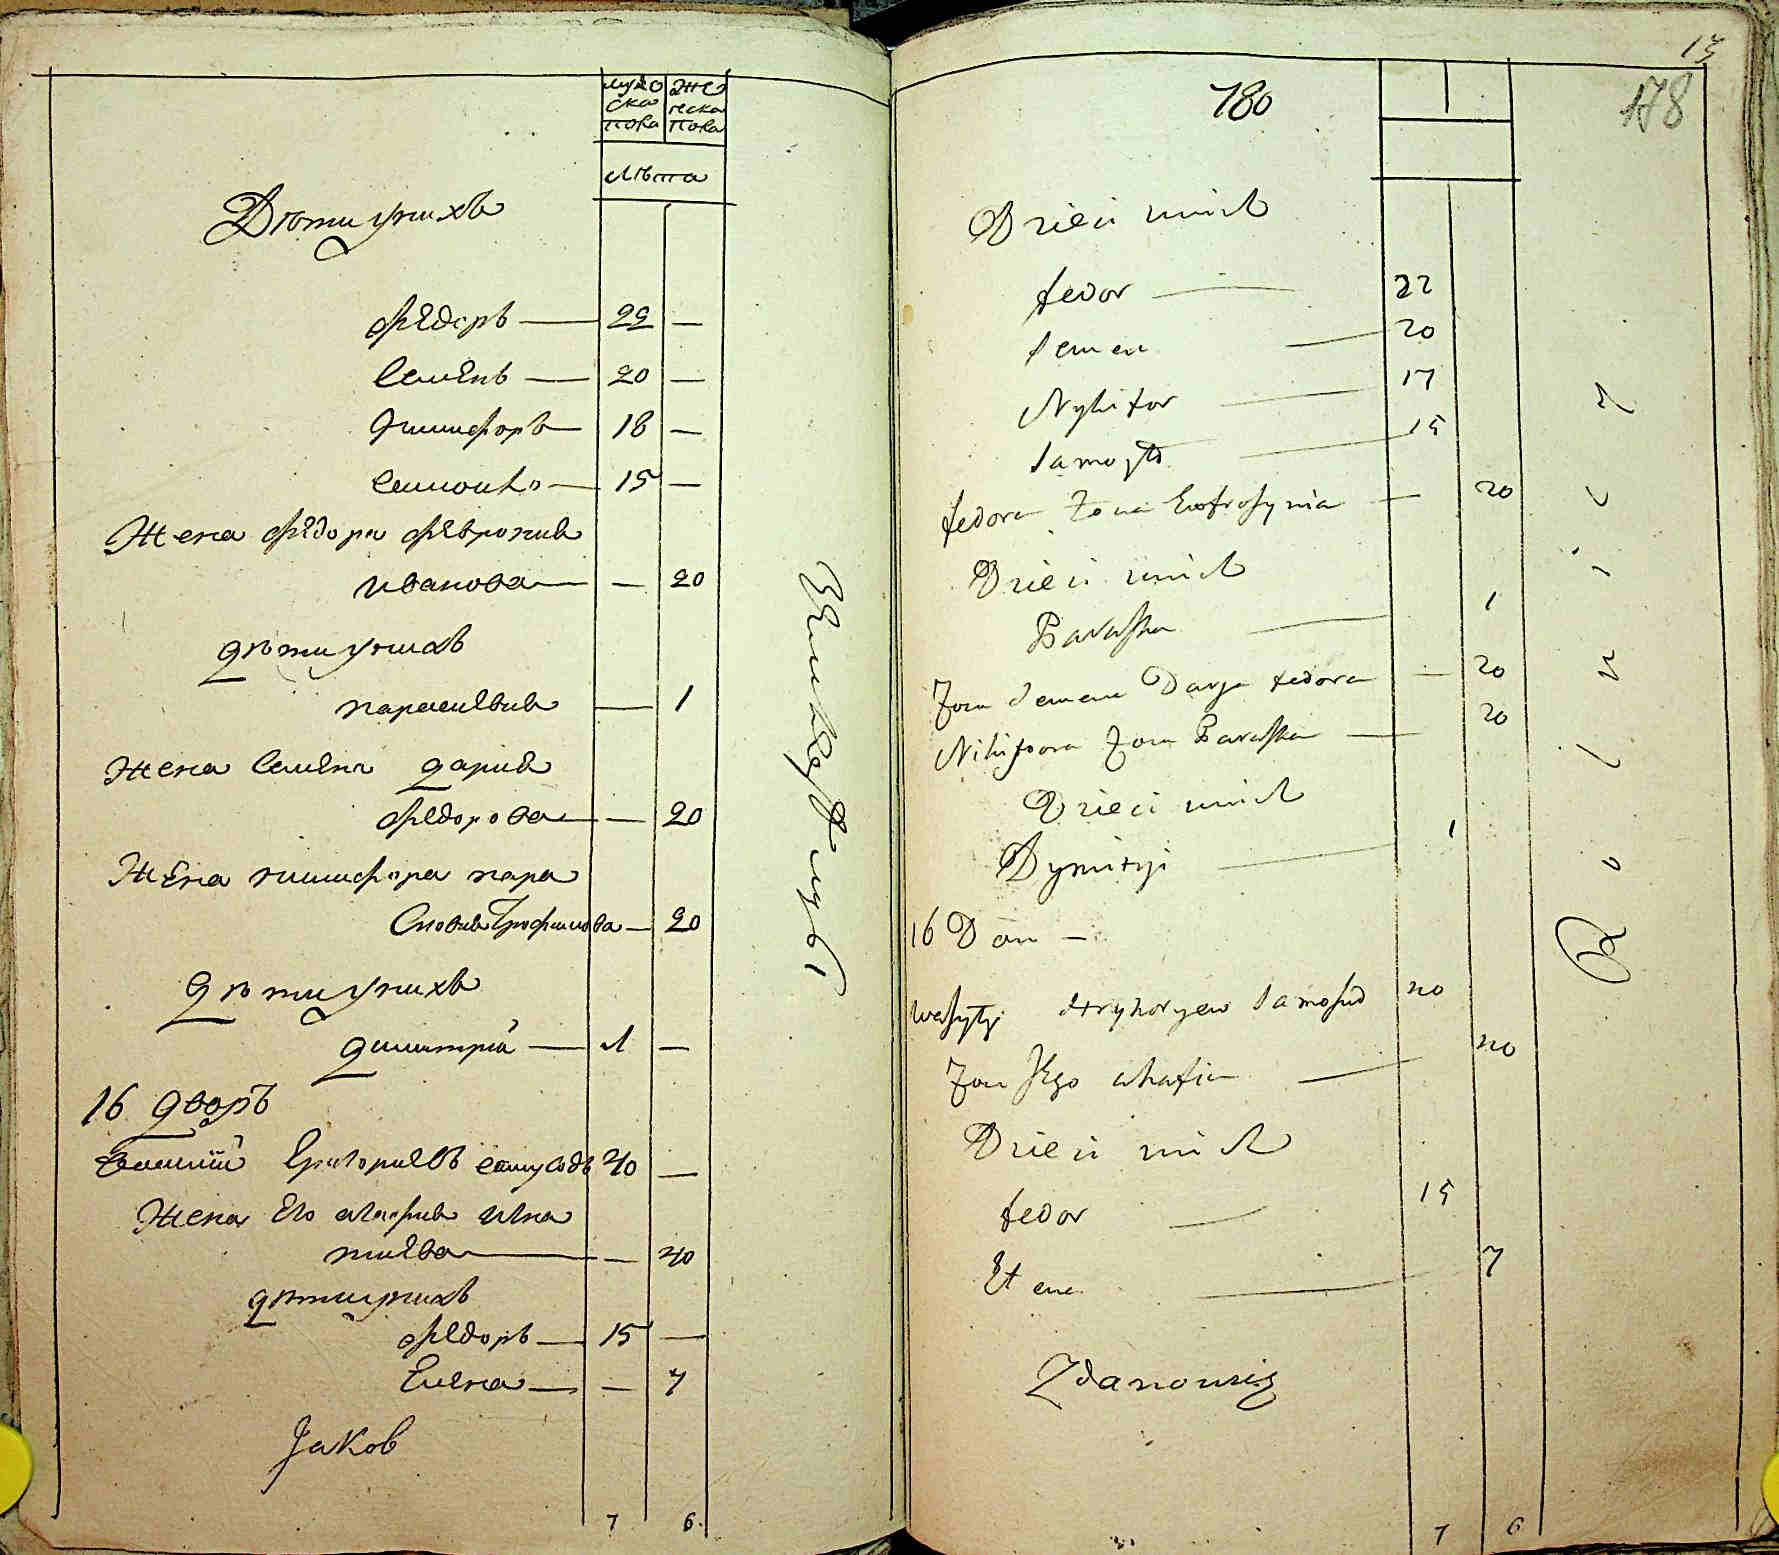 мужеска пола
женска пола
Лѣта
Дѣти у нихъ
Ѳедоръ — 22 —
Семенъ — 20 —
Никифоръ — 18 —
Самойло — 15 —
Жена Ѳедора Ѳевронія
Иванова — — 20
дѣти у нихъ
параскевія — 1
Жена Семена дарія
Ѳедорова — — 20
Жена никифора пара
сковія Трофимова — 20
дѣти у нихъ
димитрій — 1 —
16 дворъ
Василій Григориевъ самусовъ 40 —
Жена Его агафия Игна
тиева — — 40
дѣти у нихъ
Ѳедоръ — 15 —
Елена — — 7
Jakob
7 6
Земледѣлцы
15
178
180
Dzieci u nich
fedor — 22
Semen — 20
Nykifor — 17
Samoyło — 15
fedora Żona Ewfrosynia — 20
Dzieci u nich
Paraska — 1
Żona Semena Darja fedora — 20
Nikifora Żona Paraska — 20
Dzieci u nich
Dymitryi — 1
16 Dom —
Wasyly Hryhoryew Samosud 40
Żona Jego ahafia — 40
Dzieci u nich
fedor — 15
Elena — 7
Zdanowicz
7 6
Rolnicy